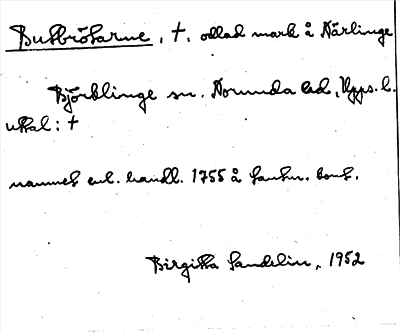 Butbrötarne, †, odlad mark å Kärlinge
Björklinge sn. Norunda hd, Upps. l.
uttal: †
namnet enl. handl. 1755 å lantm. kont.
Birgitta Sandelin, 1952